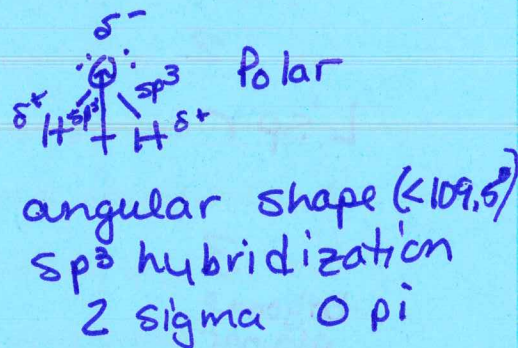 δ⁻
O Polar
sp³ sp³
δ⁺ H H δ⁺
angular shape (<109,5°)
sp³ hybridization
2 sigma 0 pi